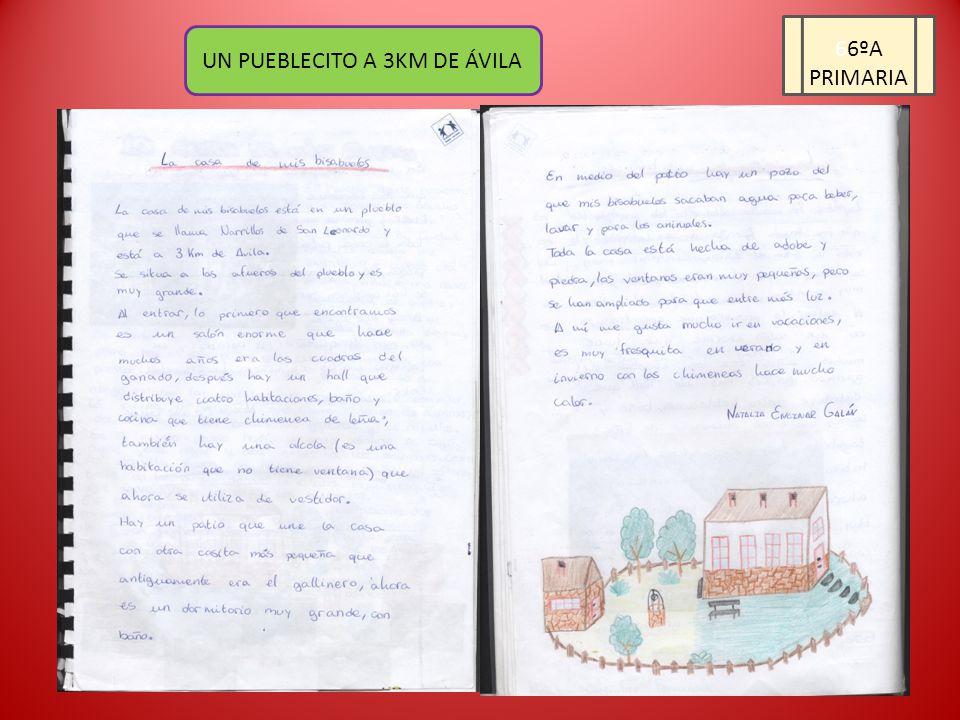 UN PUEBLECITO A 3KM DE ÁVILA
66ºA
PRIMARIA
La casa de mis bisabuelos
La casa de mis bisabuelos está en un plueblo
que se llama Narrillos de San Leonardo y
está a 3 Km de Avila.
Se situa a las afueras del plueblo y es
muy grande.
Al entrar, lo primero que encontramos
es un salón enorme que hace
muchos años era las cuadras del
ganado, después hay un hall que
distribuye cuatro habitaciones, baño y
cocina que tiene chimenea de leña;
también hay una alcola (es una
habitación que no tiene ventana) que
ahora se utiliza de vestidor.
Hay un patio que une la casa
con otra casita más pequeña que
antiguamente era el gallinero, ahora
es un dormitorio muy grande, con
baño.
En medio del patio hay un pozo del
que mis bisabuelos sacaban agua para beber,
lavar y para los animales.
Toda la casa está hecha de adobe y
piedra, las ventanas eran muy pequeñas, pero
se han ampliado para que entre más luz.
A mí me gusta mucho ir en vacaciones,
es muy fresquita en verano y en
invierno con las chimeneas hace mucho
calor.
NATALIA ENCINAR GALÁN